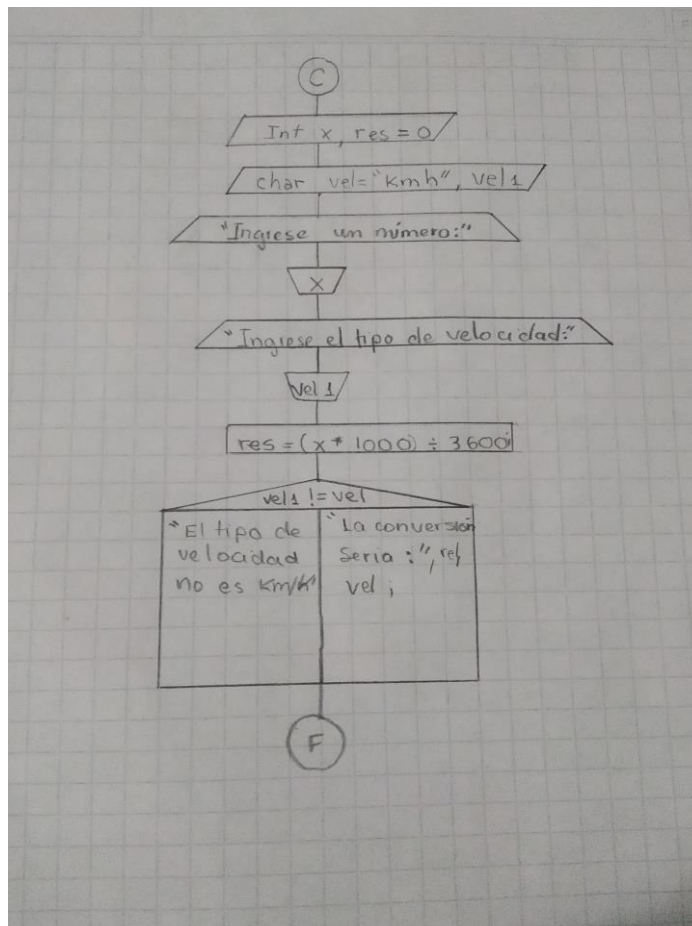 C
Int x, res = 0
char vel="Kmh", vel1
"Ingrese un número:"
x
"Ingrese el tipo de velocidad:"
vel 1
res = (x * 1000) ÷ 3600;
vel1 != vel
"El tipo de
velocidad
no es Km/h"
"La conversión
seria :",
vel ;
F